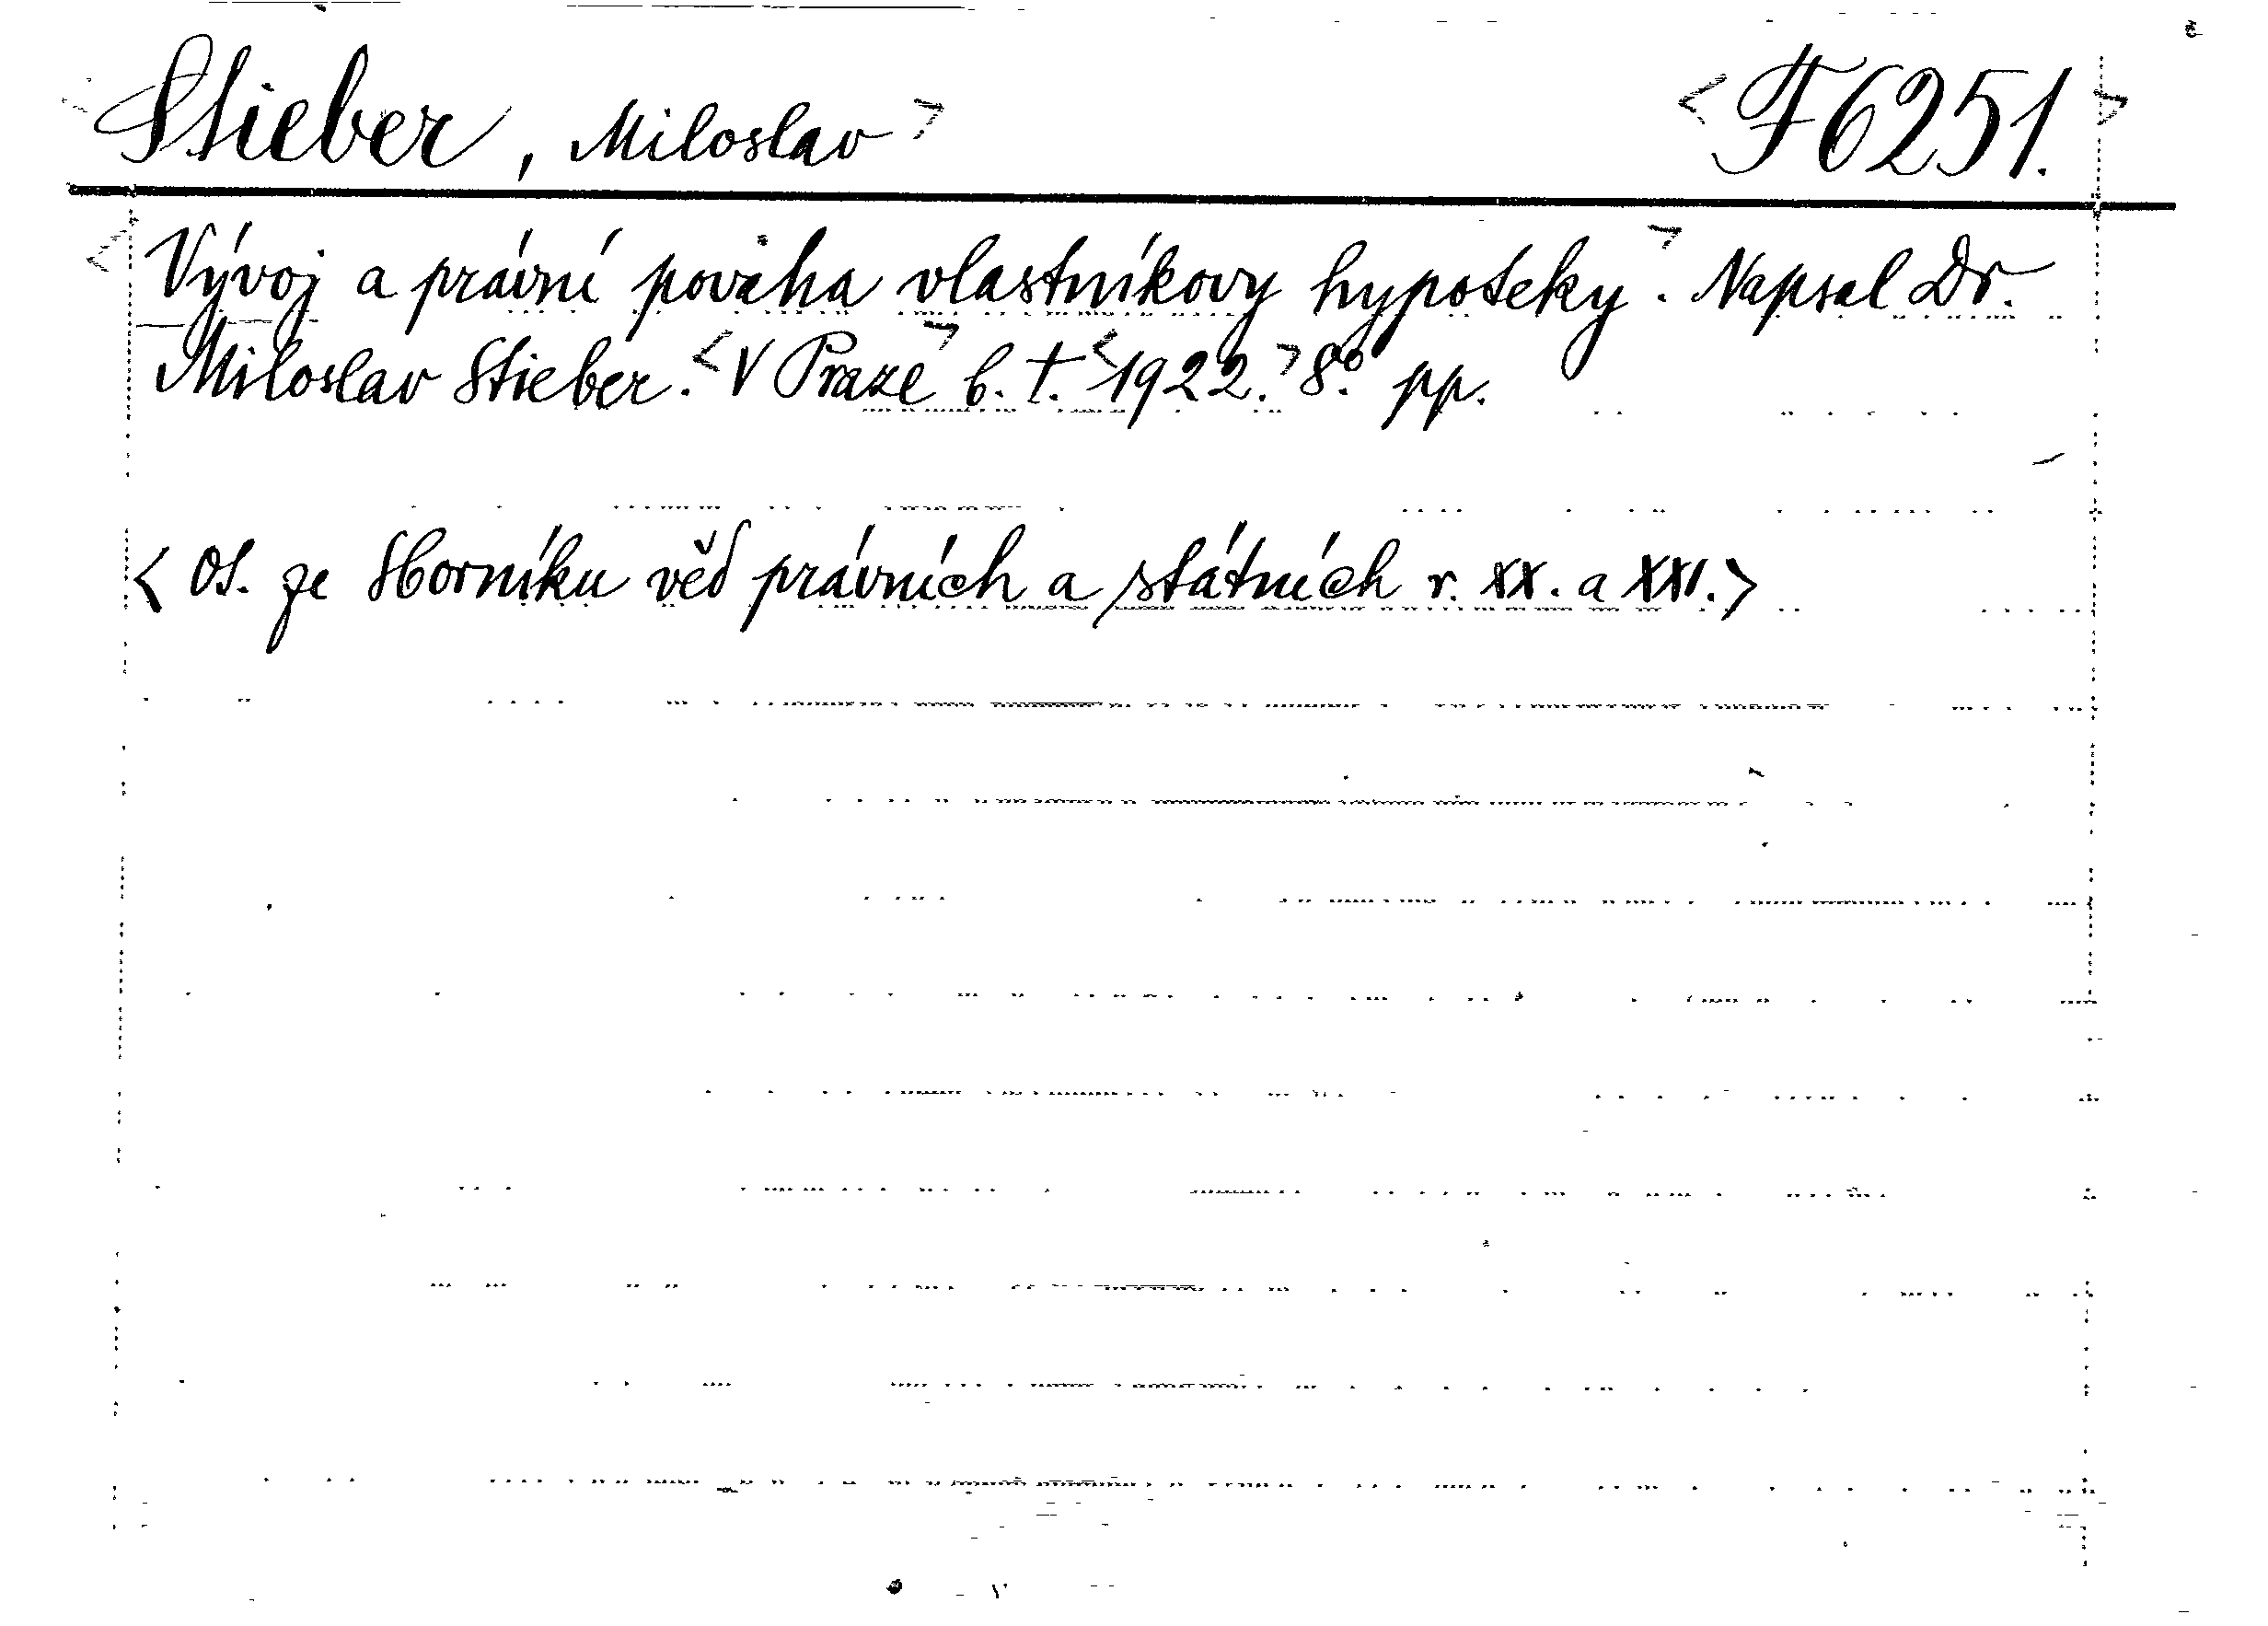 <Stieber, Miloslav> <F6251.>
<Vývoj a právní povaha vlastníkovy hypoteky>. Napsal Dr.
Miloslav Stieber. <V Praze> b. t. <1922.> 8.° pp.
<Ot. ze Sborníku věd právních a státních r. XX. a XXI.>